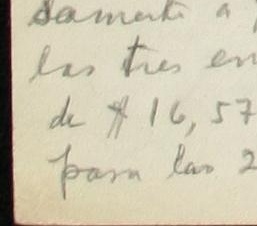 samente a
las tres en
de $ 16,57
para las 2